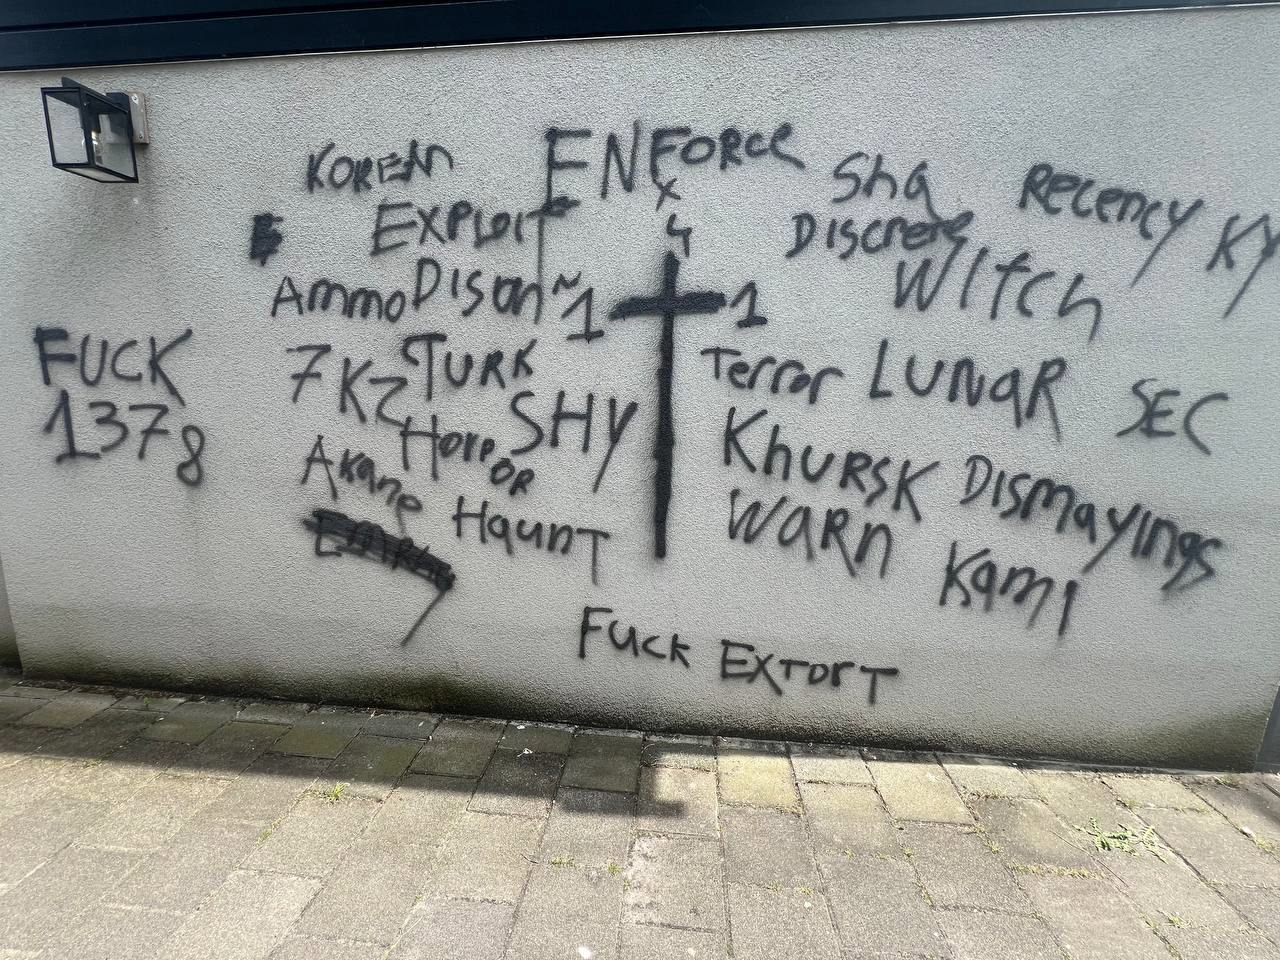 KOREN ENFORCE Sha Recency KY
x
EXPLOIT 4 Discrete
Ammo Dison ~1 1 Witch
FUCK 7KZ TURK Terror LUNAR SEC
1378 Horror SHY Khursk Dismayings
Akane Haunt WARN Kami
Fuck Extort